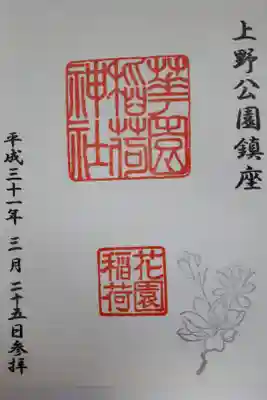 上野公園鎮座
華園
稲荷
神社
花園
稲荷
平成三十一年 三月 二十五日参拝